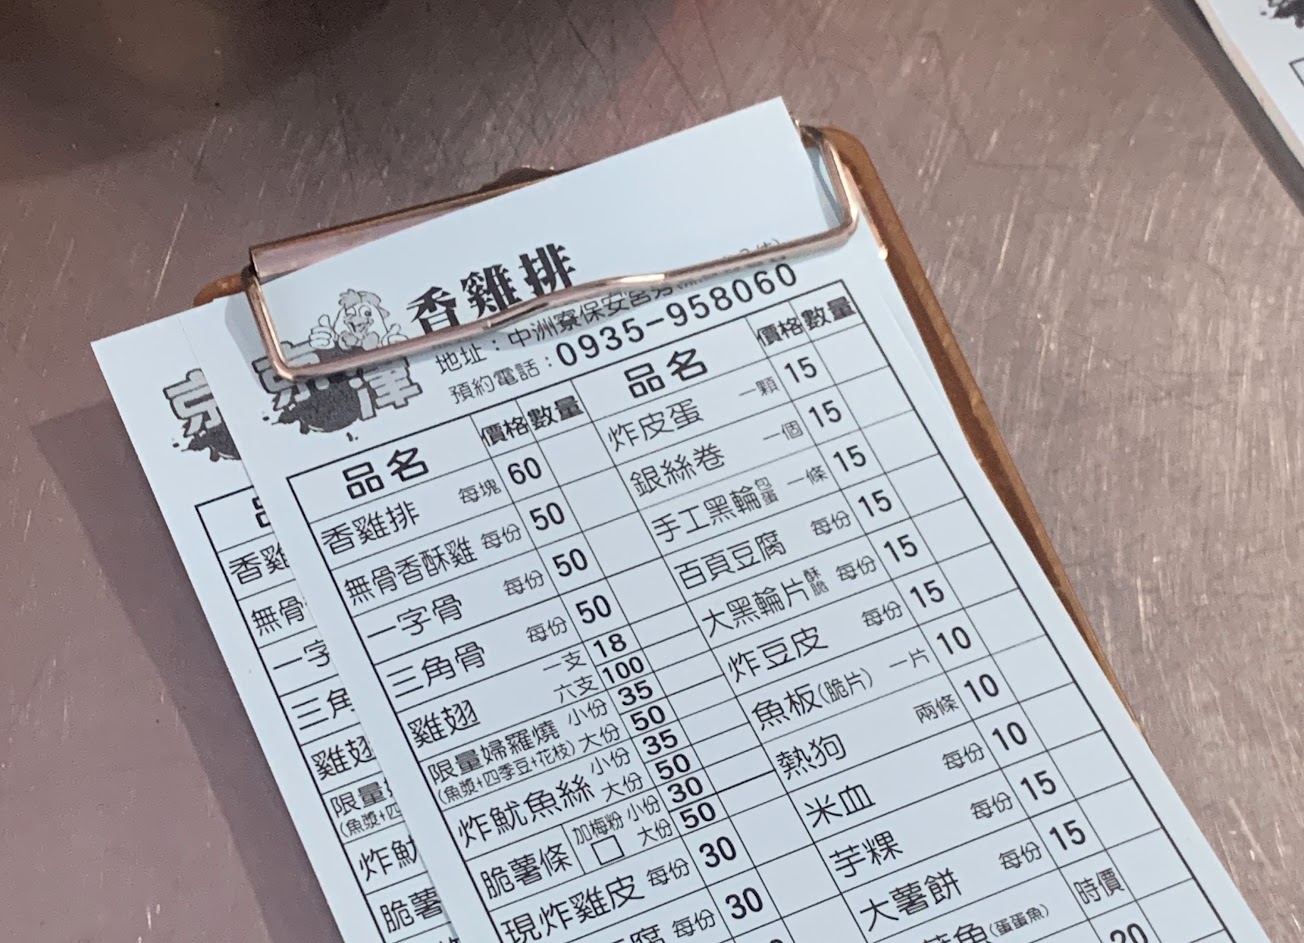 香雞排
京津
地址：中洲寮保安宮旁
預約電話：0935-958060
品名 價格 數量
香雞排 每塊 60
無骨香酥雞 每份 50
一字骨 每份 50
三角骨 每份 50
雞翅 一支 18
六支 100
限量婦羅燒 小份 35
(魚漿+四季豆+花枝) 大份 50
炸魷魚絲 小份 35
大份 50
脆薯條 加梅粉 小份 30
大份 50
現炸雞皮 每份 30
腐 每份 30
品名 價格 數量
炸皮蛋 一顆 15
銀絲卷 一個 15
手工黑輪 包蛋 一條 15
百頁豆腐 每份 15
大黑輪片 酥脆 每份 15
炸豆皮 每份 15
魚板(脆片) 一片 10
熱狗 兩條 10
米血 每份 10
芋粿 每份 15
大薯餅 每份 15
魚(蛋蛋魚) 時價
20
京
香雞
無骨
一字
三角
雞翅
限量
(魚漿+四
炸魷
脆薯